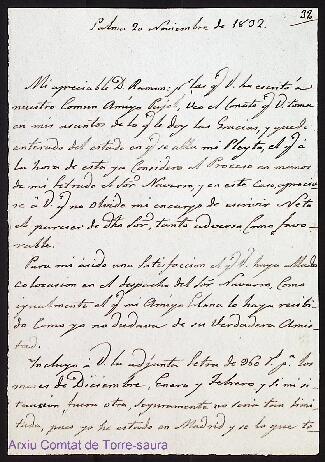 32
Palma 20 Noviembre de 1832.
Mi apreciable D. Ramon: pr. las qe. V. ha escrito á
nuestro Comun Amigo Pujol, veo el Conato qe. V. toma
en mis asuntos de lo qe. le doy las Gracias, y quedo
enterado del estado en qe. se alla mi Pleyto, el qe. á
la hora de esta ya Considero el Proceso en manos
de mi Letrado el Sor. Navarro, y en este Caso, aprecia
ré á V. qe. no olvide mi encargo de escrivir Neto
el parecer de dho. Sor., tanto adverso Como favo-
rable.
Para mi á sido una Satisfaccion el qe. V. haya
colocacion en el despacho del Sor. Navarro, Como
igualmente el qe. mi Amigo Elana le haya recibi-
do Como yo no dudava de su verdadera Amis-
tad.
Incluyo á V. la adjunta Letra de 960 r. pr. los
meses de Diciembre, Enero y Febrero y si mi si-
tuacion, fuera otra, seguramente no seria tan limi-
tada, pues yo he estado en Madrid y se lo que
Arxiu Comtat de Torre-saura